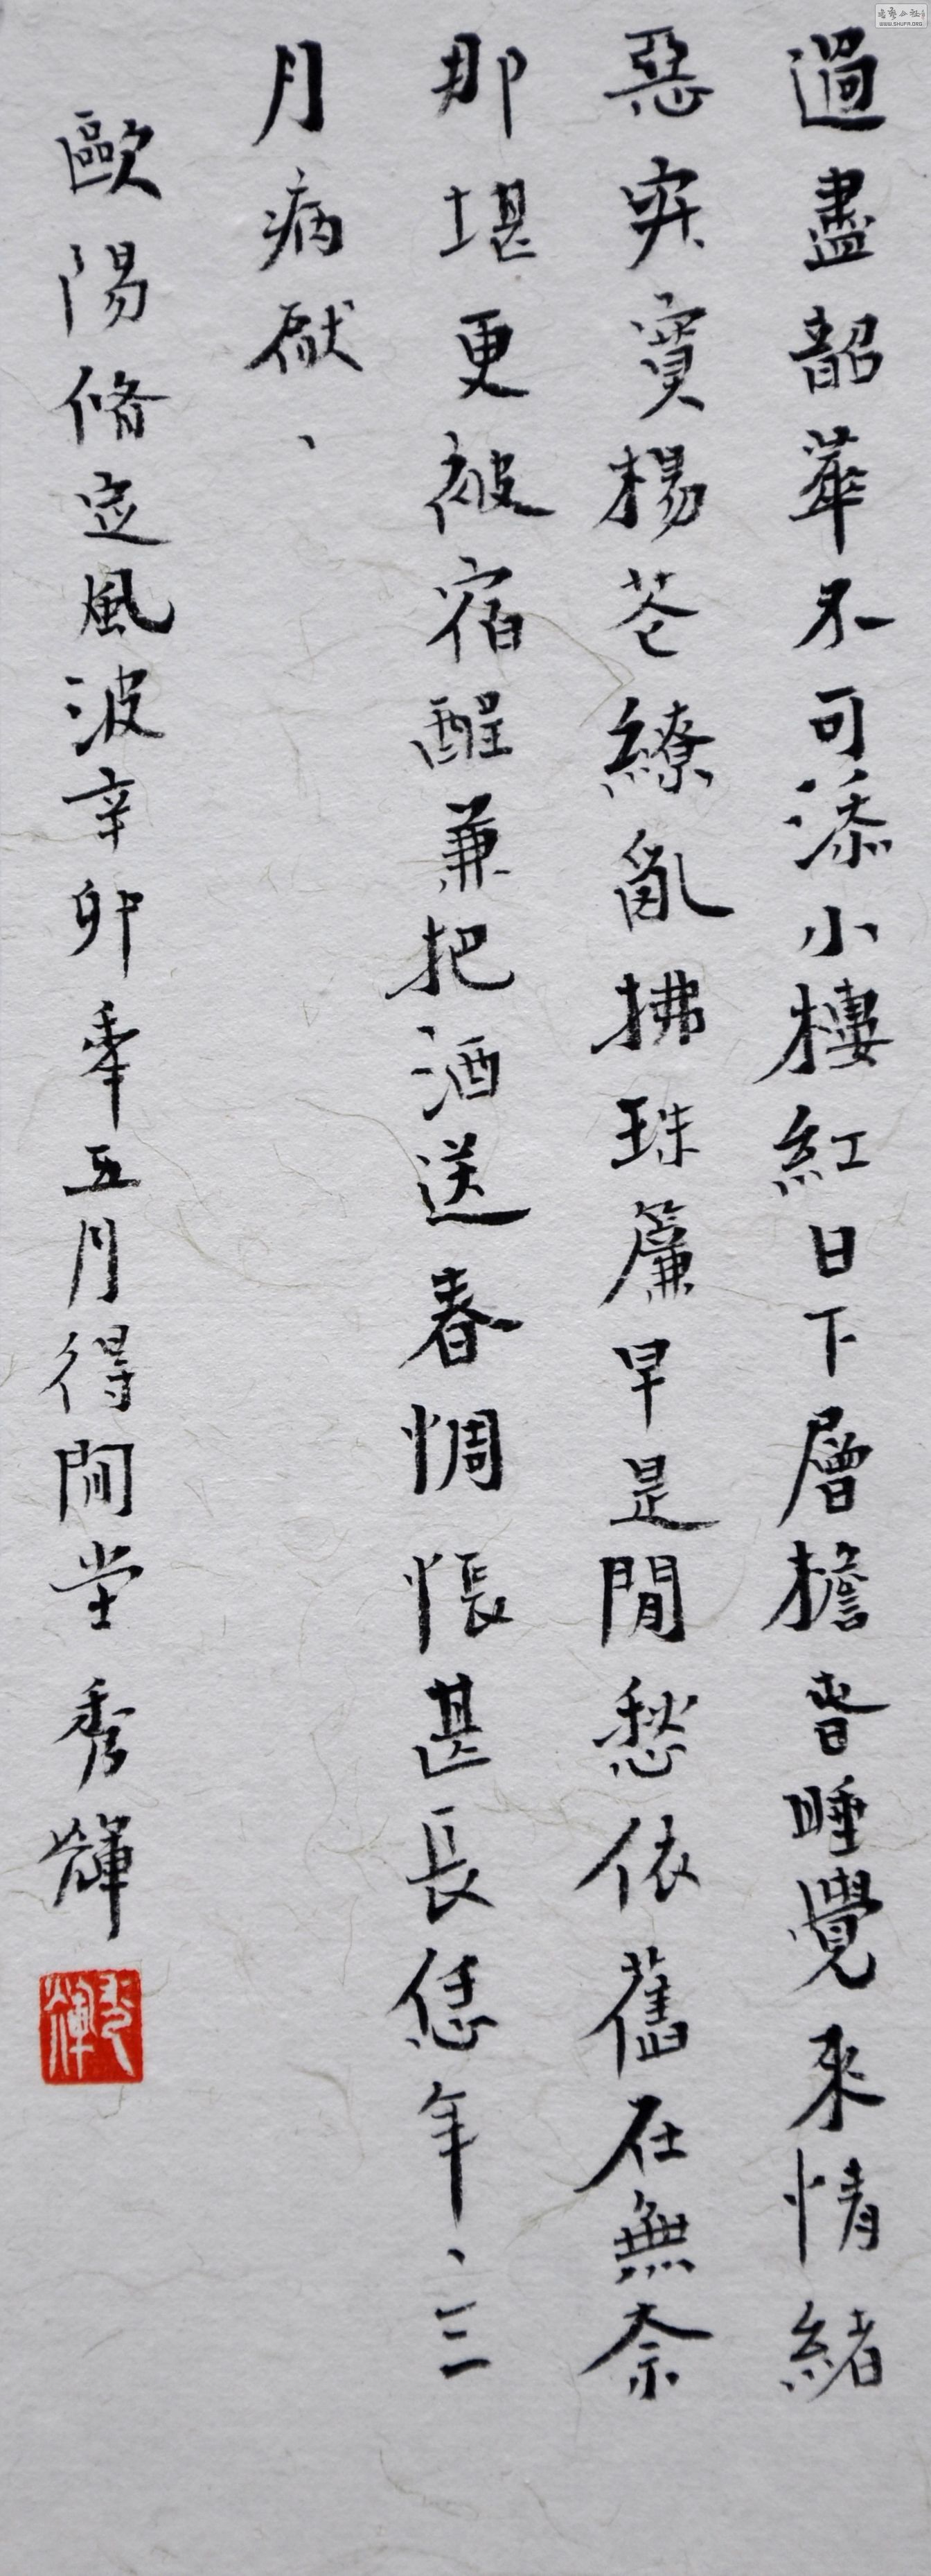 過盡韶華不可添小樓紅日下層檐春睡覺來情緒
惡寂寞楊花繚亂拂珠簾早是閒愁依舊在無奈
那堪更被宿酲兼把酒送春惆悵甚長恁年、三
月病厭、
歐陽脩定風波辛卯年五月得閒堂秀輝
秀輝
WWW.SHUFA.ORG